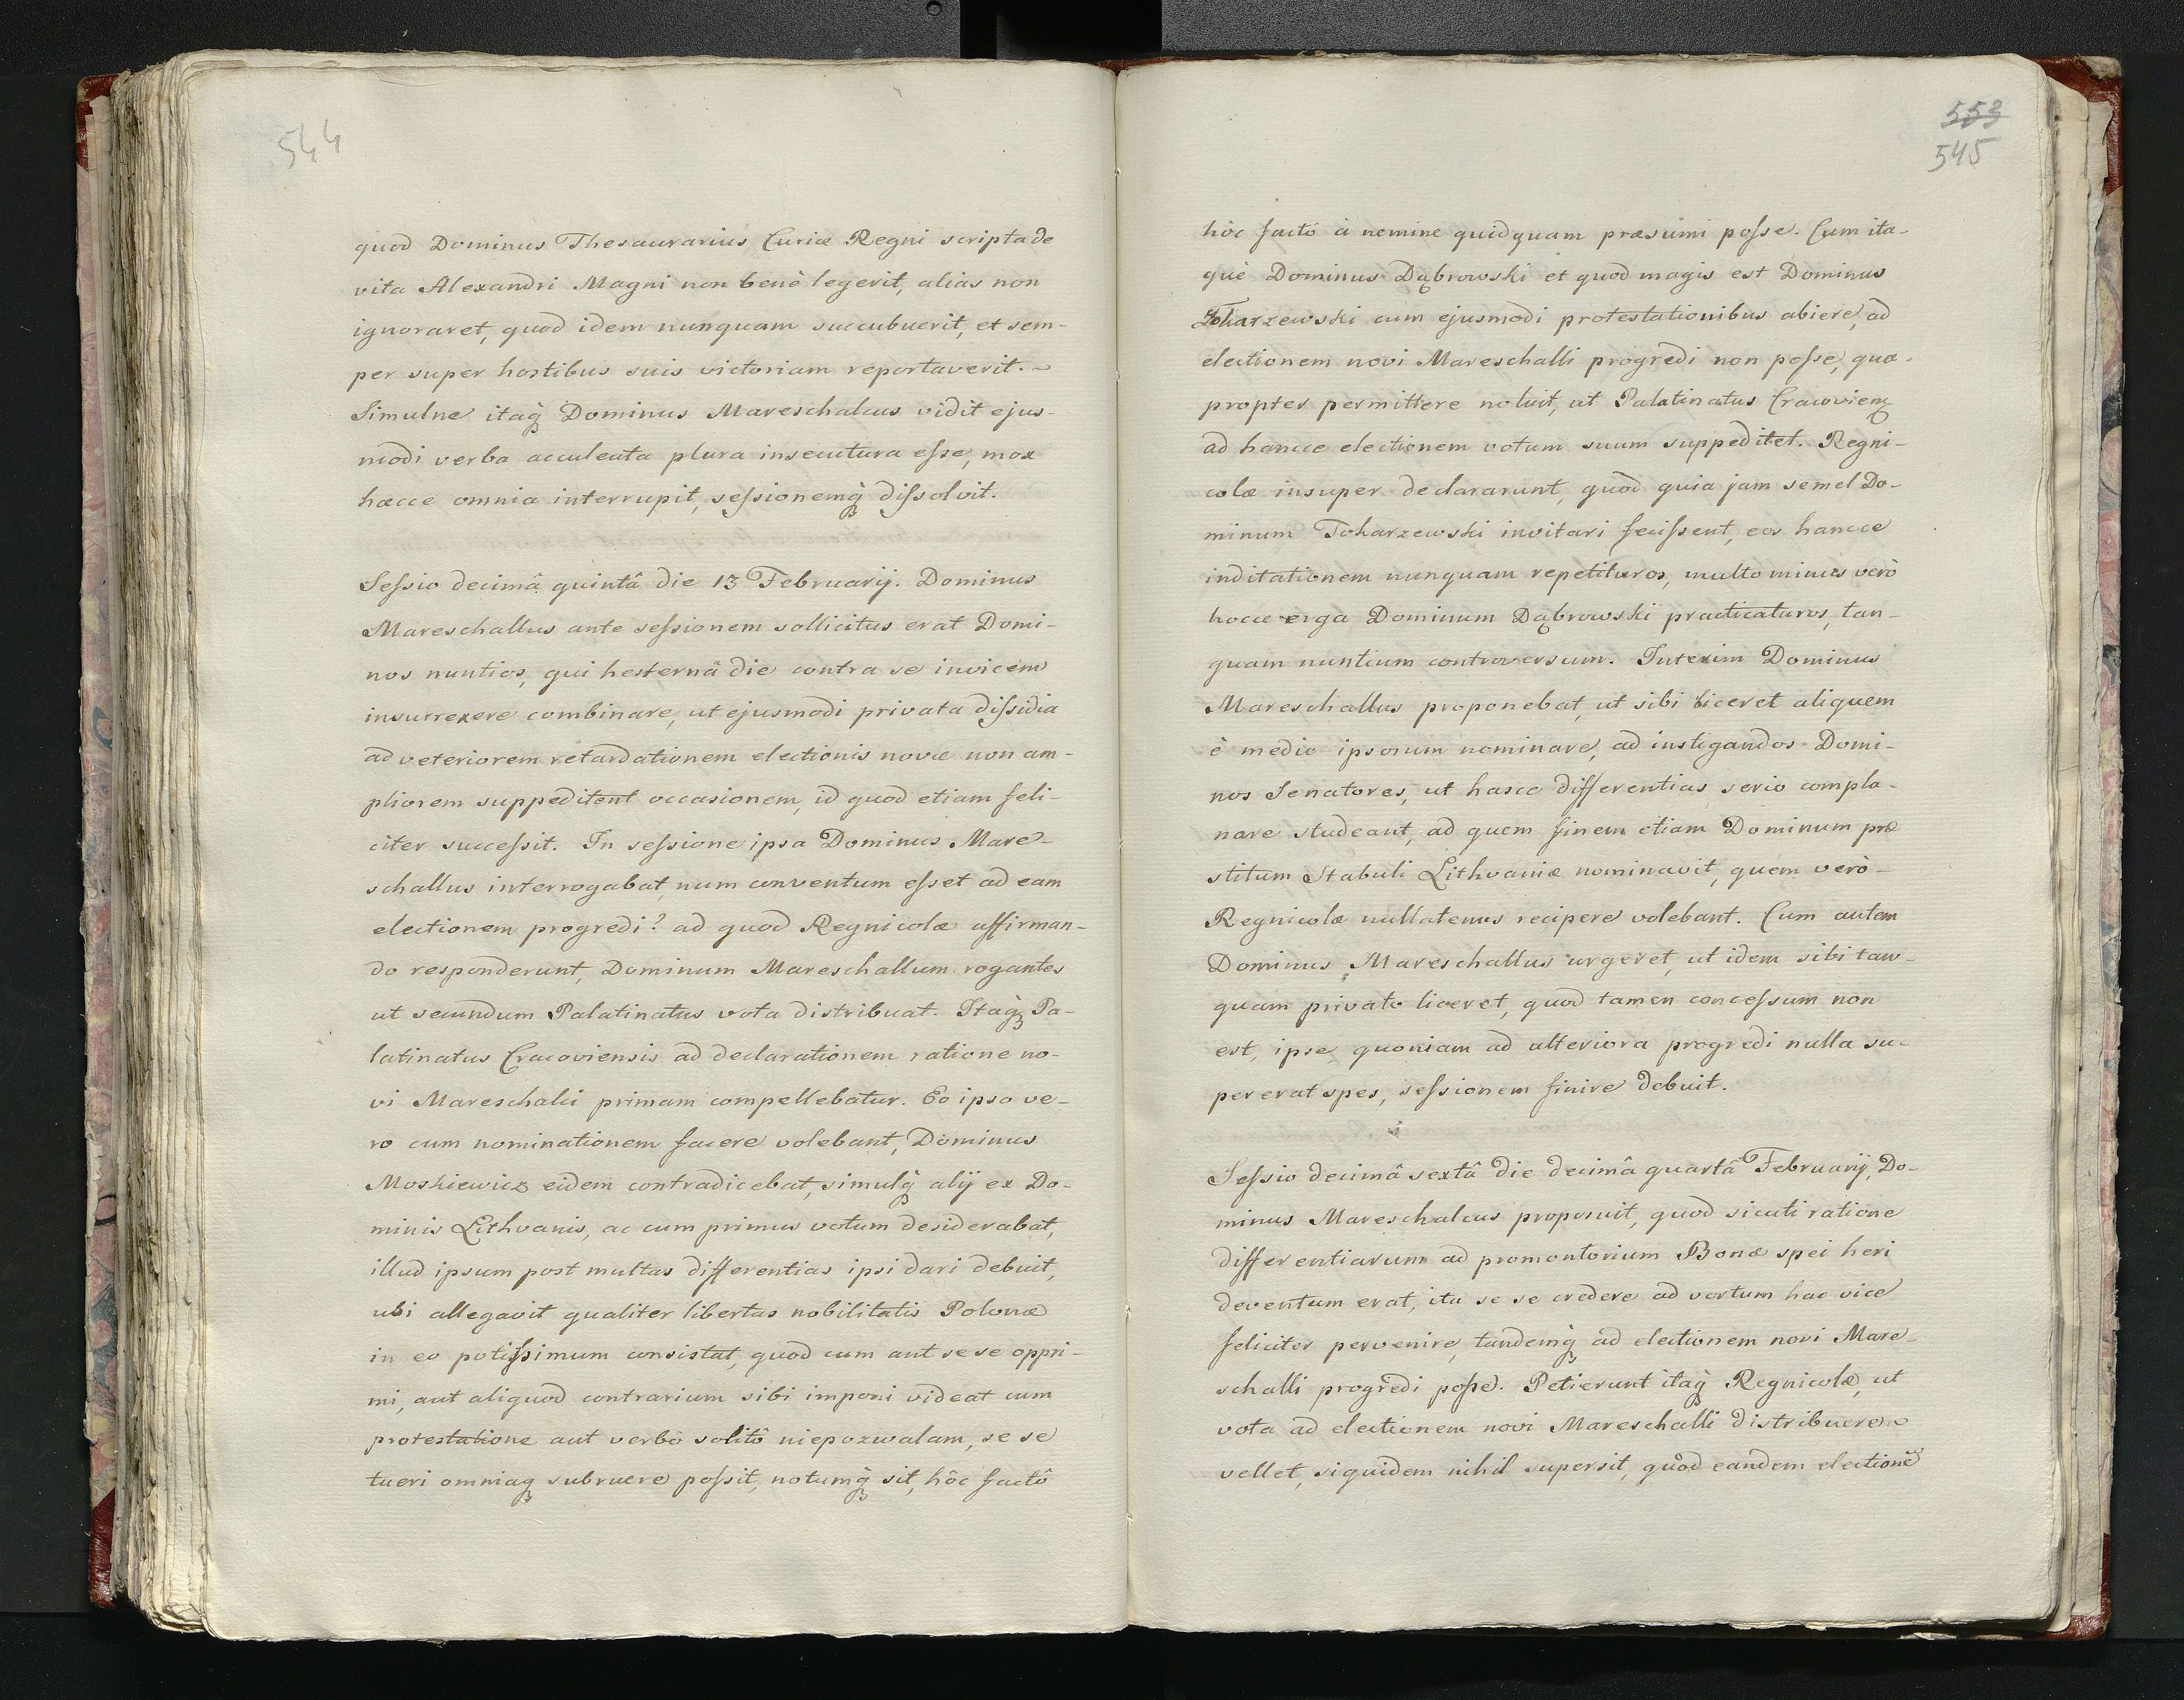 544
quod Dominus Thesaurarius Curiæ Regni scripta de
vita Alexandri Magni non benè legerit, alias non
ignoraret, quod idem nunquam succubuerit, et sem-
per super hostibus suis victoriam reportaverit. ~
Simulne itaq̀ꝫ Dominus Mareschalcus vidit ejus-
modi verba acculeata plura insecutura eſse, mox
hæcce omnia interrupit, seſsionemq̀ꝫ diſsolvit.
Seſsio decimâ quintâ die 13 Februarij. Dominus
Mareschallus ante seſsionem sollicitus erat Domi-
nos nuntios, qui hesternâ die contra se invicem
insurrexere combinare, ut ejusmodi privata diſsidia
ad veteriorem retardationem electionis novæ non am-
pliorem suppeditent occasionem, id quod etiam feli-
citer succeſsit. In seſsione ipsa Dominus Mare-
schallus interrogabat, num conventum eſset ad eam
electionem progredi? ad quod Regnicolæ affirman-
do responderunt, Dominum Mareschallum rogantes
ut secundum Palatinatus vota distribuat. Itaq̀ꝫ Pa-
latinatus Cracoviensis ad declarationem ratione no-
vi Mareschalci primam compellebatur. Eo ipso ve-
ro cum nominationem facere volebant, Dominus
Moskiewicz eidem contradicebat, simulq̀ꝫ alij ex Do-
minis Lithvanis, ac cum primus votum desiderabat,
illud ipsum post multas differentias ipsi dari debuit,
ubi allegavit qualiter libertas nobilitatis Polonæ
in eo potiſsimum consistat, quod cum aut se se oppri-
mi, aut aliquod contrarium sibi imponi videat cum
protestatione aut verbo solitô niepozwalam, se se
tueri omniaqꝫ subruere poſsit, notumq̀ꝫ sit, hôc factô
553
545
hôc factô à nemine quidquam præsumi poſse. Cum ita-
què Dominus Dąbrowski et quod magis est Dominus
Tokarzewski cum ejusmodi protestationibus abiere, ad
electionem novi Mareschalli progredi non poſse, qua-
propter permittere noluit, ut Palatinatus Cracovienꝫ
ad hancce electionem votum suum suppeditet. Regni-
colæ insuper declararunt, quod quia jam semel Do-
minum Tokarzewski invitari feciſsent, eos hancce
inditationem nunquam repetituros, multo minus verò
hocce erga Dominum Dąbrowski practicaturos, tan-
quam nuntium controversum. Interim Dominus
Mareschallus proponebat, ut sibi liceret aliquem
è medio ipsorum nominare, ad instigandos Domi-
nos Senatores, ut hasce differentias serio compla-
nare studeant, ad quem finem etiam Dominum præ
stitum Stabuli Lithvaniæ nominavit, quem verò-
Regnicolæ nullatenus recipere volebant. Cum autem
Dominus Mareschallus urgeret, ut idem sibi tan-
quam privato liceret, quod tamen conceſsum non
est, ipse, quoniam ad ulteriora progredi nulla su-
pererat spes, seſsionem finire debuit.
Seſsio decimâ sextâ die decimâ quartâ Februarij, Do-
minus Mareschalcus proposuit, quod sicuti ratione
differentiarum ad promontorium Bonæ spei heri
deventum erat, ita se se credere ad vortum hac vice
feliciter pervenire, tandemq̀ꝫ ad electionem novi Mare-
schalli progredi poſse. Petierunt itaq̀ꝫ Regnicolæ, ut
vota ad electionem novi Mareschalli distribuere ~
vellet, siquidem nihil supersit, quod eandem electionē